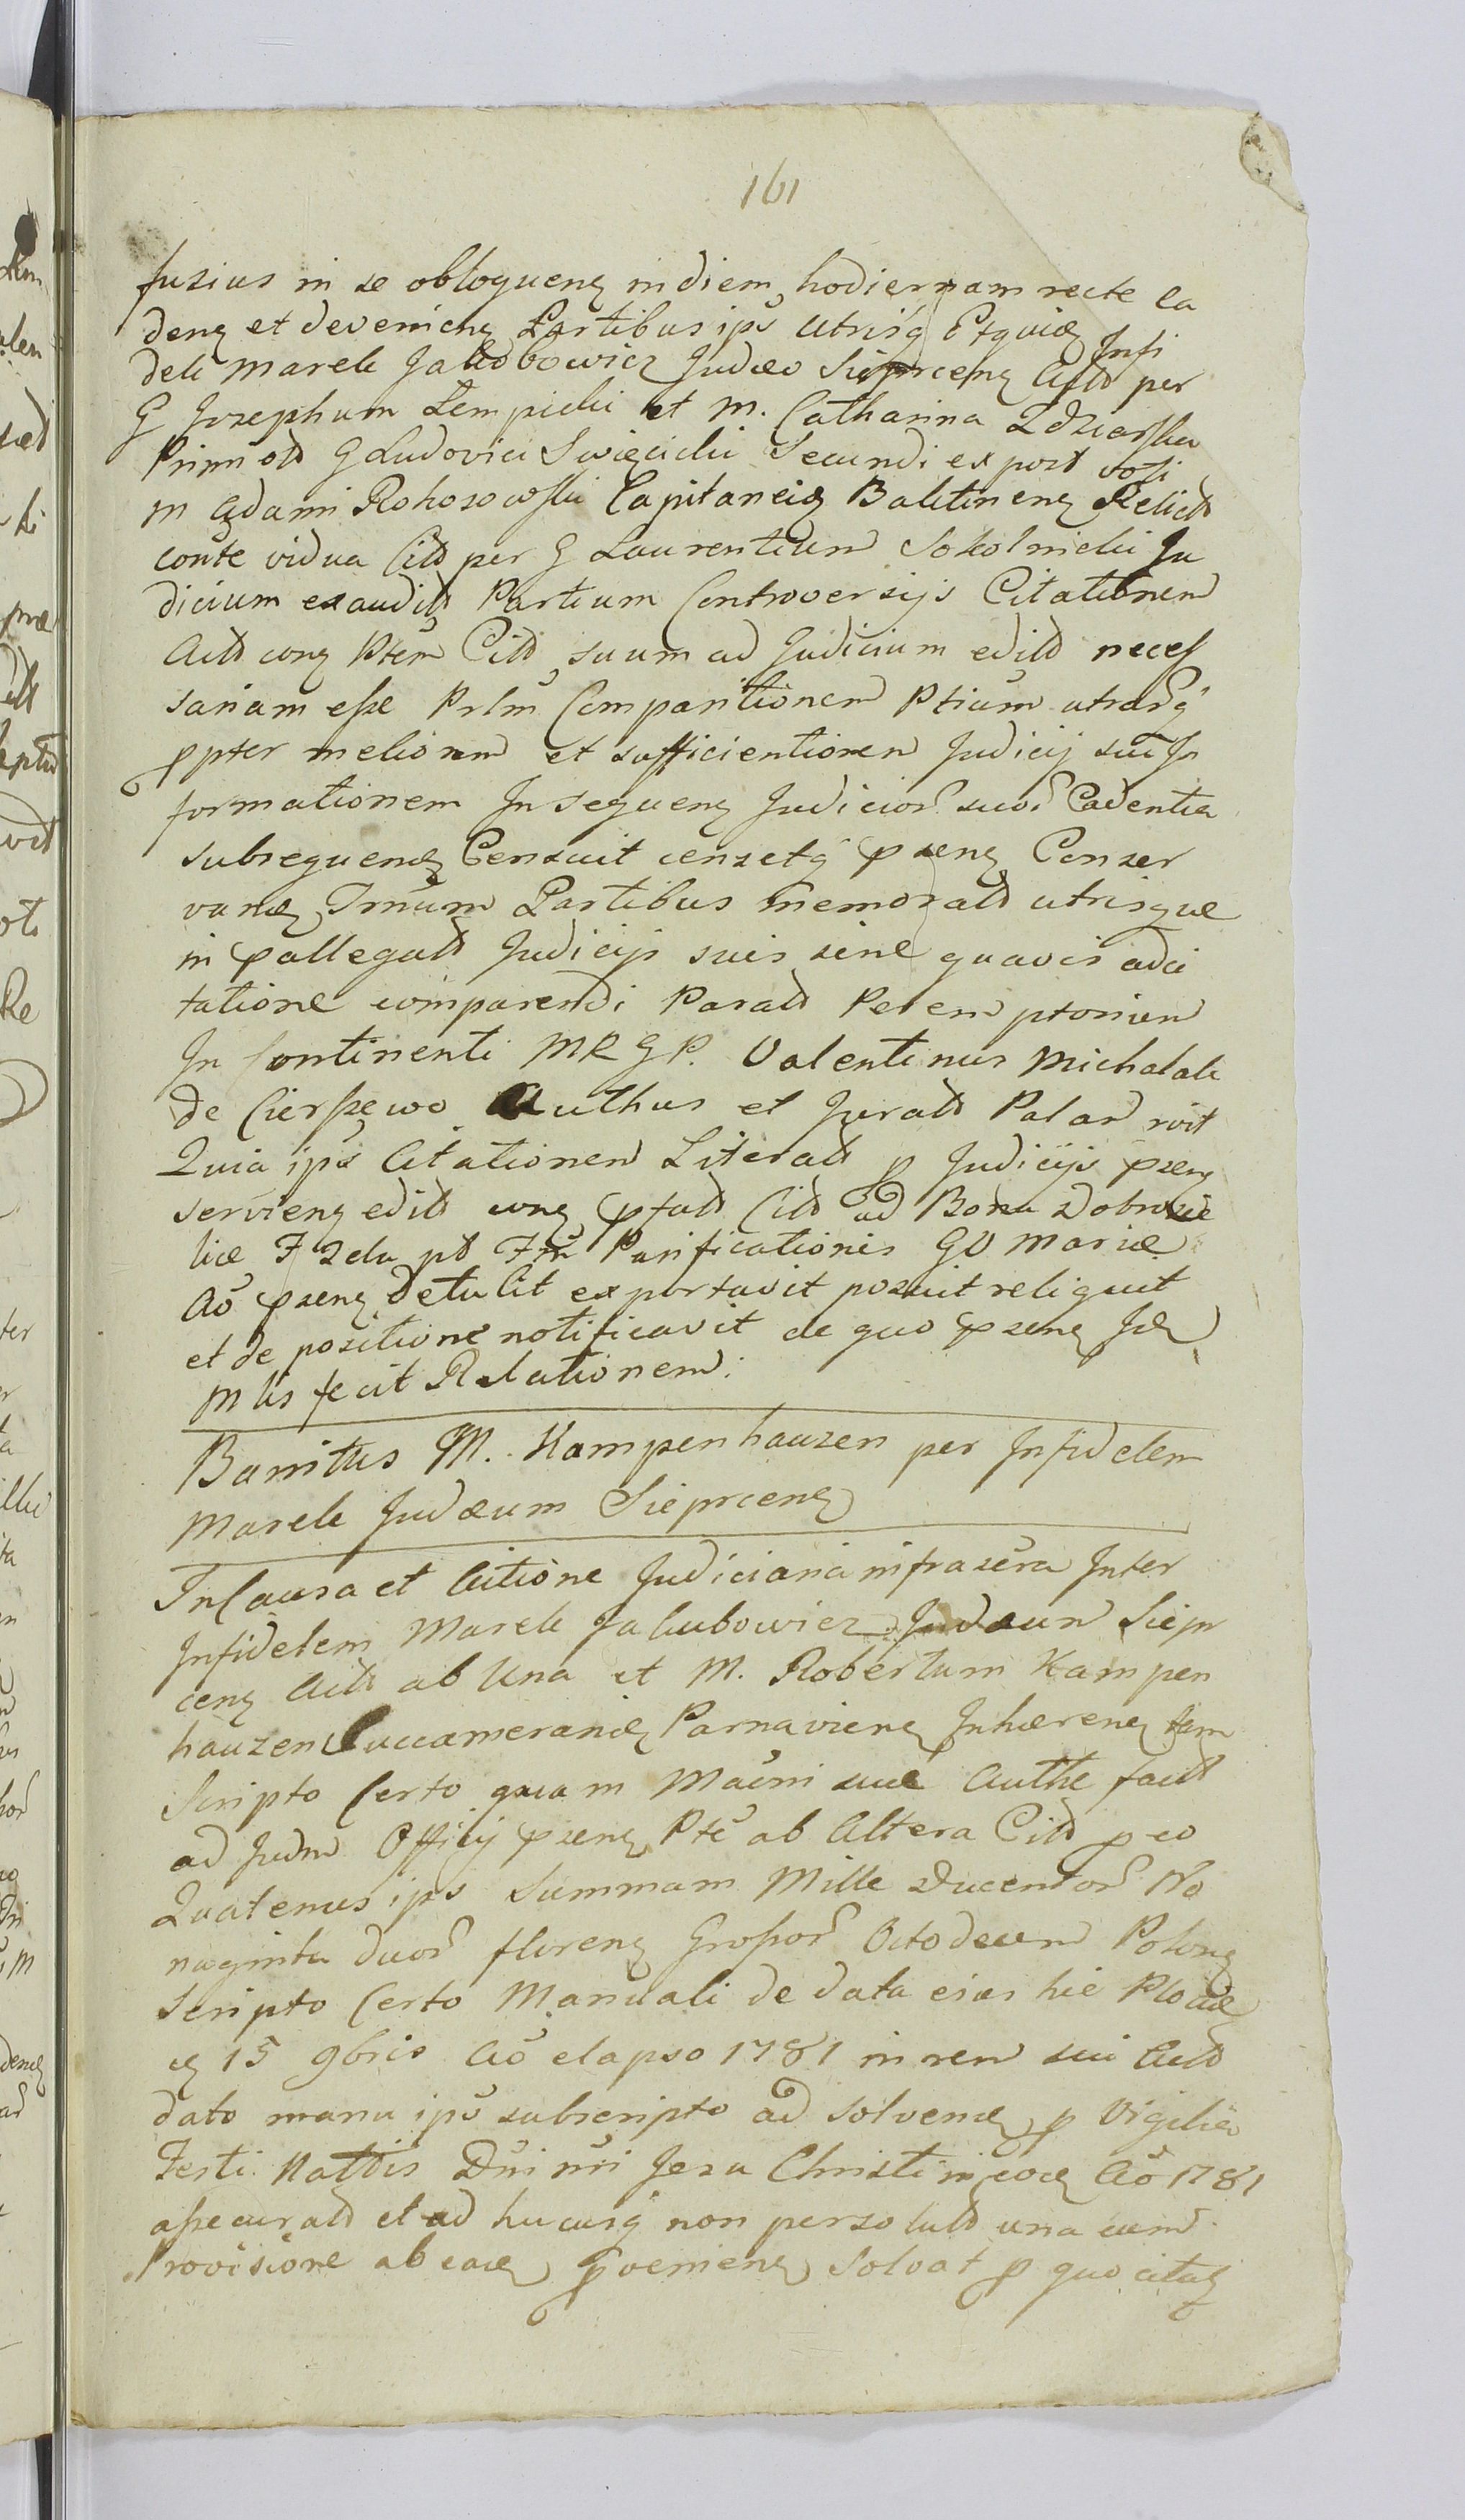 161
fusius in se obloquenς in diem hodiernam recte ca
denς et devenienς Partibus ipš utrisq Etquidς Infi
deli Marek Jakobowicz Judæo Sieprcenς Actð per
G Josephum Lempicki et M. Catharina Zdziarska
Primi otð G Ludovici Swięcicki Secundi ex post voti
M Adami Rokosowski Capitaneidς Baltinenς Relictð
conte vidua Citð per G Laurentium Sokolnicki Ju
dicium exauditð Partium Controversijs Citationem
Actð conς Ptem Citð suum ad Judicium editð necess
sariam esse Prlm Comparitionem Ptium utrarsq
ppter meliorem et sufficientiorem Judicij sui In
formationem In sequenς Judicior suor Cadentia
subsequendς Censuit censetq pzenς Conser
vandς Tmum Partibus memoratð utrisque
in pallegatð Judicijs suis sine quavis adci
tatione comparendi Paratð Peremptorium
In Continenti MRGP. Valentinus Michalak
de Cierszewo Authus et Juratð Palam rvit
Quia ipš Citationem Literatð p Judicijs pzenς
servienς editð conς ptatð Citð ad Bona Dobrosie
lice F 2da pt Ftm Purificationis GV Mariæ
Aõ pzenς detulit exportavit posuit reliquit
et de positione notificavit de quo pzenς Jdς
Mlis fecit Relationem.
Banitus M. Kampenhauzen per Infidelem
Marek Judæum Sieprcenς
In Causa et Actione Judiciaria infrascra Inter
Infidelem Marek Jakubowicz Judæum Siepr
cenς Actð ab Una et M. Robertum Kampen
hauzen Succamerandς Parnavienς Inhærenς tam
Scripto Certo quam Maeni suæ Authe factð
ad Judm Officij pzenς Pte ab Altera Citð p eo
Quatenus ipš Summam Mille Ducentor No
naginta duor florenς Grossor Octodecem Polonς
Scripto Certo Manuali de data ejus hic Plociæ
ς 15 9bris Aõ elapso 1781 in rem sui Actð
dato manu ipš subscripto ad solvendς p Vigilia
Festi Nattis Dni nri Jesu Christi in eodς Aõ 1781
assecuratð et ad hucusq non persolutð una cum
Provisione ab eadς pvenienς Solvat p quo citatς